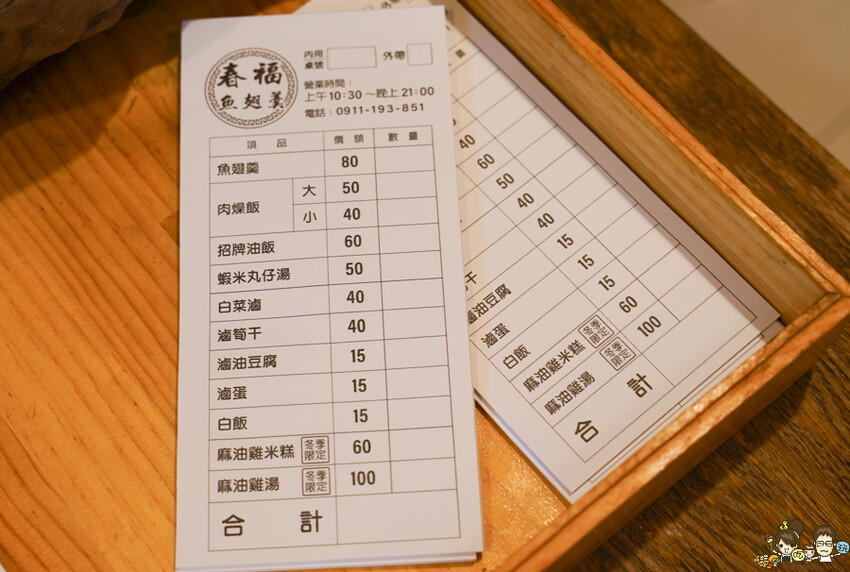 春福
魚翅羹
內用
桌號
外帶
營業時間：
上午10:30～晚上21:00
電話：0911-193-851
項品 價額 數量
魚翅羹 80
肉燥飯 大 50
小 40
招牌油飯 60
蝦米丸仔湯 50
白菜滷 40
滷筍干 40
滷油豆腐 15
滷蛋 15
白飯 15
麻油雞米糕 冬季限定 60
麻油雞湯 冬季限定 100
合計
量
40
60
50
40
干 40
滷油豆腐 15
滷蛋 15
白飯 15
麻油雞米糕 冬季限定 60
麻油雞湯 冬季限定 100
合計